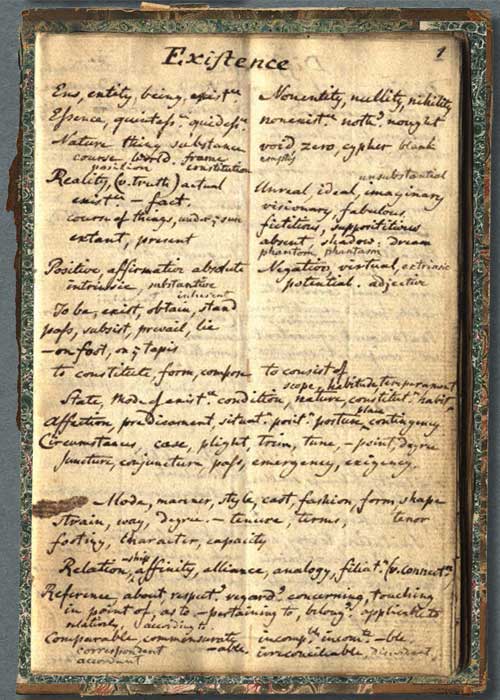 1
Existence
Ens, entity, being, exist.ce
Nonentity, nullity, nihility
Essence, quintess.ce quidess.ce
nonexist.ce noth.g nought
Nature thing substance
void zero, cypher blank
course, world. frame
empty
position constitution
unsubstantial
Reality, (v. truth) actual
Unreal ideal, imaginary
exist.ce — fact.
visionary, fabulous,
course of things, under ye sun
fictitious, supposititious
extant, present
absent, shadow, dream
phantom phantasm
Positive, affirmative absolute
Negation, virtual, extrinsic
intrinsic, substantive
potential. adjective
inherent
To be, exist, obtain, stand
pass, subsist, prevail, lie
— on foot, on ye tapis
to constitute, form, compose to consist of
scope, habitude temperament
State, Mode of exist.ce condition, nature, constitut.n habit
place
Affection, predicament, situat.n posit.n posture contingency
Circumstances, case, plight, trim, tune, — point, degree
Juncture, conjuncture pass, emergency, exigency.
Mode, manner, style, cast, fashion, form shape
Strain, way, degree. — tenure, terms, tenor
footing, character, capacity
Relation, -ship affinity, alliance, analogy, filiat.n (v. connect.n
Reference, about respect.g regard.g concerning, touching
in point of, as to — pertaining to, belong.g applicable to
relatively, according to
Comparable, commensurate, incomp.ble incom.te -ble,
correspondent — able, irreconcilable, discordant,
accordant